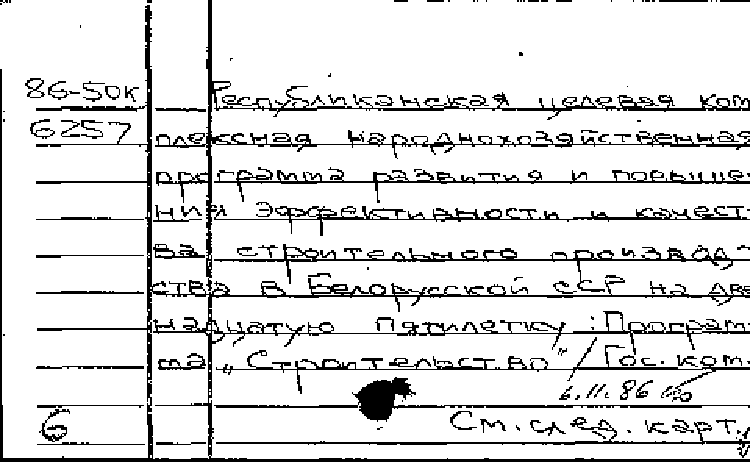 86-50к Республиканская целевая ком
6257 плексная народнохозяйственная
программа развития и повыше
ния эффективности и качест
ва строительного производ
ства в Белорусской ССР на две
надцатую пятилетку: Програм
ма „Строительство" Гос. ком.
6.11.86
6 См. след. карт.